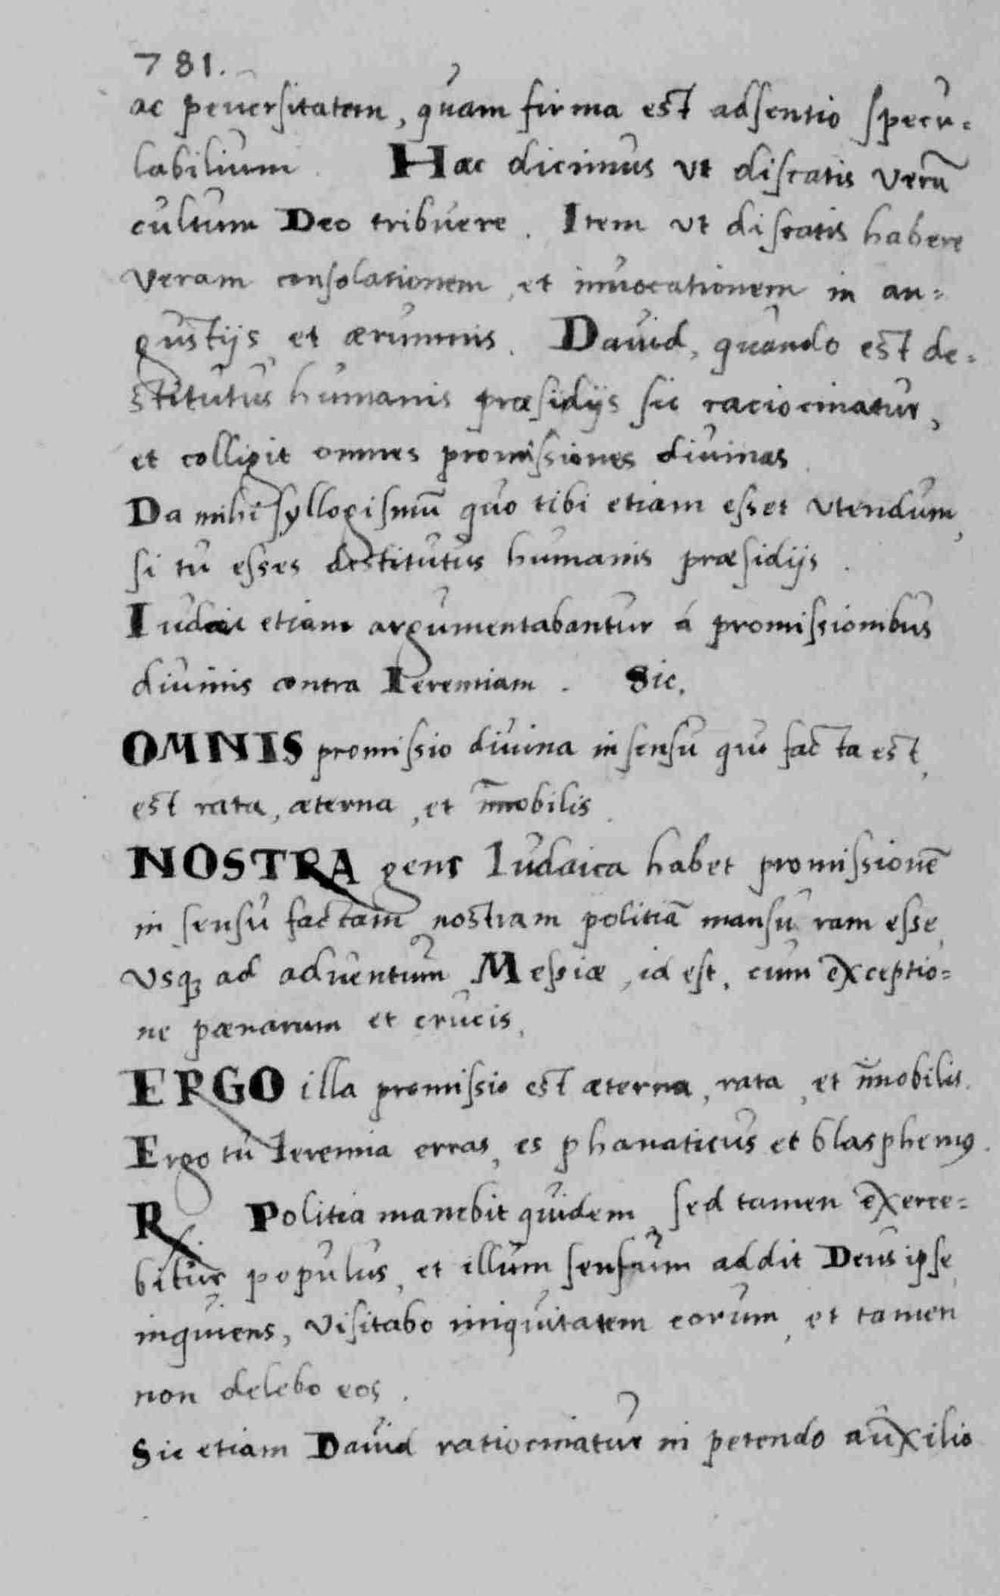 781.
ac peuersitatem, quam firma est adsentio specu-
labilium. Hæc dicimus ut discatis verũ
cultum Deo tribuere. Item ut discatis habere
veram consolationem, et inuocationem in an-
gustijs et ærumnis. Dauid, quando est de-
stitutus humanis præsidijs sic raciocinatur,
et colligit omnes promissiones diuinas.
Da mihi syllogismũ quo tibi etiam esset utendum,
si tu esses destitutus humanis præsidijs.
Iudæi etiam argumentabantur á promissionibus
diuinis contra Ieremiam. Sic.
OMNIS promissio diuina in sensu quo facta est,
est rata, æterna, et im̃obilis.
NOSTRA gens Iudaica habet promissionẽ
in sensu factam nostram politiã mansuram esse,
usq; ad aduentum Messiæ, id est, cum exceptio-
ne pænarum et crucis,
ERGO illa promissio est æterna, rata, et im̃obilis.
Ergo tu Ieremia erras, es phanaticus et blasphemꝰ.
R. Politia manebit quidem, sed tamen exerce-
bitur populus, et illum sensum addit Deus ipse
inquiens, Visitabo iniquitatem eorum, et tamen
non delebo eos.
Sic etiam Dauid ratiocinatur in petendo auxilio